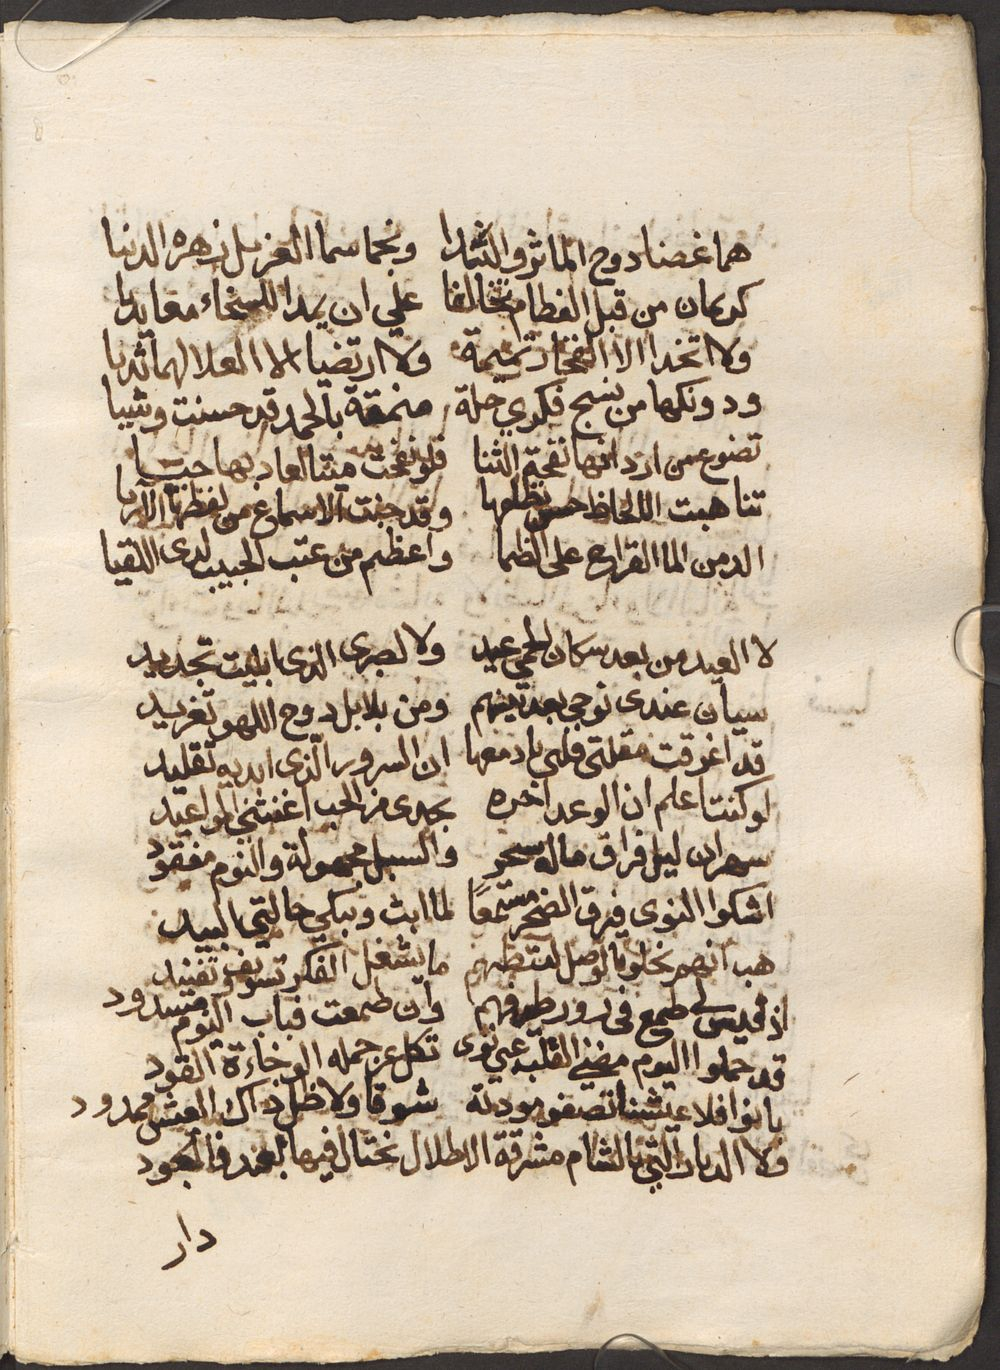 هما غصنا دوح الماثر والثنا ونجما سما العز بل زهره الدنيا
كريمان من قبل الفطام تحالفا علي ان يمدا للسخاء معا يديا
ولا اتخدا الا الفخار تميمة ولا ارتضيا الا العلا لهما ثديا
ودونكها من نسج فكري حلة منمقة بالحمد قد حسنت وشيا
تضوع من اردانها نفحة الثنا فلو نفحت ميتا لعاد بها حيا
تناهبت اللحاظ حسن نظامها وقد جنت الاسماع من لفظها الاريا
الد من الما القراح على الظما واعظم من عتب الحبيب لدى اللقيا
لا العيد من بعد سكان الحمي عيد ولا لصبري الذي ابليت تجديد
سيان عندى نوحي بعد بينهم ومن بلابل دوح اللهو تغريد
قد اغرقت مقلتى قلبي بادمعها ان السرور الذي ابديه تقليد
لو كنت اعلم ان الوعد اخره يجدى من الحب اغنتني المواعيد
سهران ليل فراق ماله سحر والسبل مجهولة والنوم مفقود
اشكوا النوى فيرق الصخر مستمعا لما ابث وتبكي حالتي البيد
هب انهم بخلو بالوصل لمنتظرهم ما يشغل الفكر تسويف وتفنيد
اذ ليس لي طمع في زور طيفهم وان طمعت فباب النوم مسدود
قد حملوا اليوم مضني القلب عبي نوى تكل عن حمله الوخاءة القود
بانوا فلا عيشنا تصفو مودته شوقا ولا ظل ذاك العيش ممدود
ولا الديار التي بالشام مشرقة الاطلال نختال فيها الخود
دار